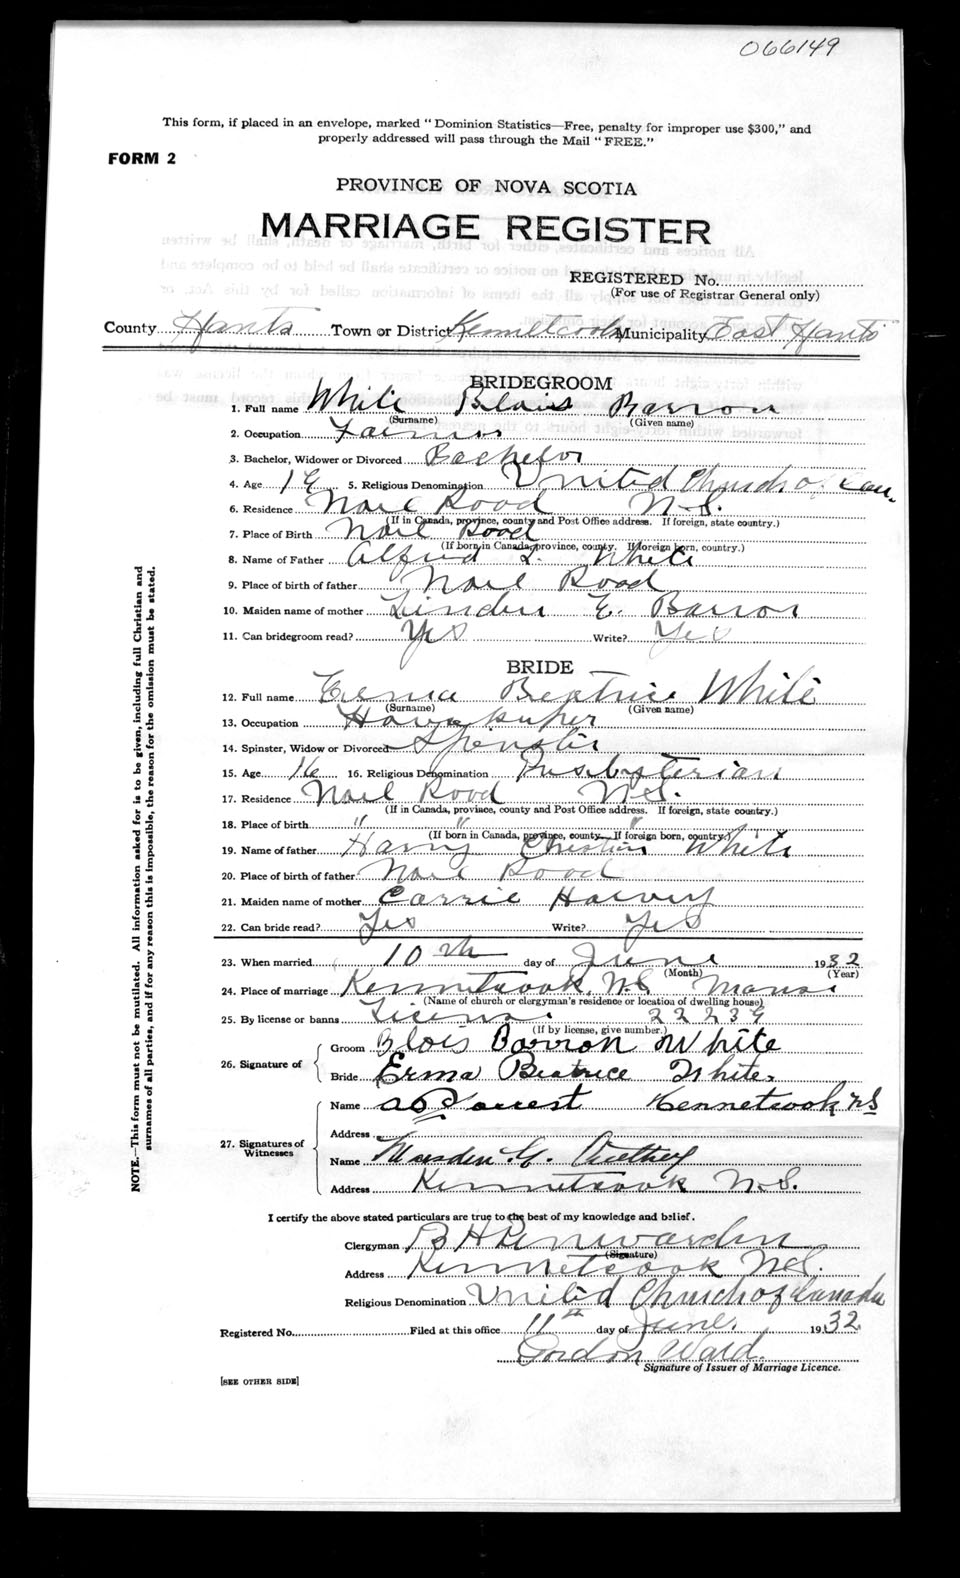 066149
This form, if placed in an envelope, marked "Dominion Statistics—Free, penalty for improper use $300," and
properly addressed will pass through the Mail "FREE."
FORM 2
PROVINCE OF NOVA SCOTIA
MARRIAGE REGISTER
REGISTERED No.
(For use of Registrar General only)
County Hants Town or District Kennetcook Municipality East Hants
BRIDEGROOM
1. Full name White Blois Barron
(Surname) (Given name)
2. Occupation Farmer
3. Bachelor, Widower or Divorced Bachelor
4. Age 19 5. Religious Denomination United Church of Can.
6. Residence Noel Road N.S.
(If in Canada, province, county and Post Office address. If foreign, state country.)
7. Place of Birth Noel Road
(If born in Canada, province, county. If foreign born, country.)
8. Name of Father Alfred L. White
9. Place of birth of father Noel Road
10. Maiden name of mother E. Barron
11. Can bridegroom read? Yes Write? Yes
BRIDE
12. Full name Erma Beatrice White
(Surname) (Given name)
13. Occupation Housekeeper
14. Spinster, Widow or Divorced Spinster
15. Age 16 16. Religious Denomination Presbyterian
17. Residence Noel Road N.S.
(If in Canada, province, county and Post Office address. If foreign, state country.)
18. Place of birth " " "
(If born in Canada, province, county. If foreign born, country.)
19. Name of father Harry Christian White
20. Place of birth of father Noel Road
21. Maiden name of mother Carrie Harvey
22. Can bride read? Yes Write? Yes
23. When married 10th day of June 1932
(Month) (Year)
24. Place of marriage Kennetcook, N.S. Manse
(Name of church or clergyman's residence or location of dwelling house)
25. By license or banns License 22239
(If by license, give number.)
26. Signature of Groom Blois Barron White
Bride Erma Beatrice White.
27. Signatures of Witnesses
Name Kennetcook N.S
Address
Name
Address Kennetcook N.S.
I certify the above stated particulars are true to the best of my knowledge and belief.
Clergyman B H Penwarden
(Signature)
Address Kennetcook N.S.
Religious Denomination United Church of Canada
Registered No. Filed at this office 11th day of June. 1932.
Gordon Ward.
Signature of Issuer of Marriage Licence.
[SEE OTHER SIDE]
NOTE.—This form must not be mutilated. All information asked for is to be given, including full Christian and
surnames of all parties, and if for any reason this is impossible, the reason for the omission must be stated.